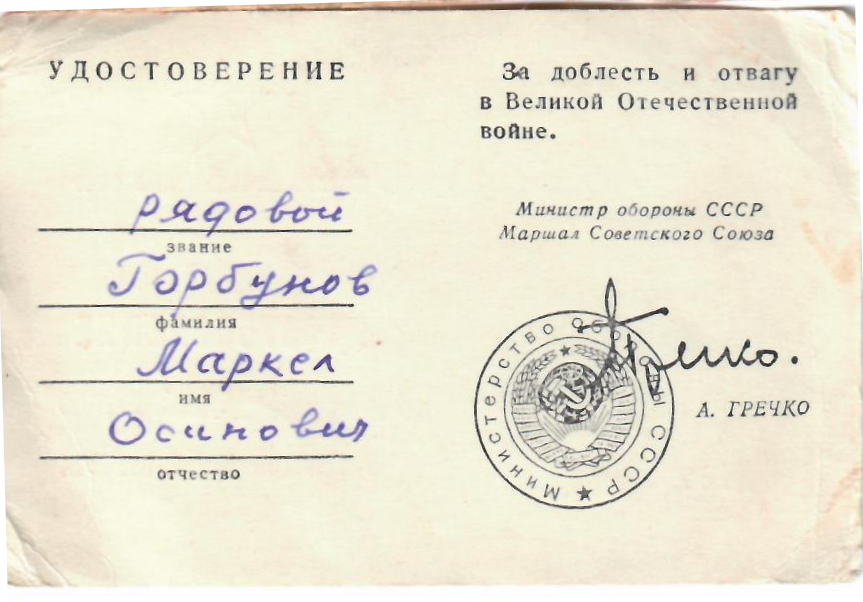 УДОСТОВЕРЕНИЕ
рядовой
звание
Горбунов
фамилия
Маркел
имя
Осипович
отчество
За доблесть и отвагу
в Великой Отечественной
войне.
Министр обороны СССР
Маршал Советского Союза
Министерство Обороны СССР
А. ГРЕЧКО